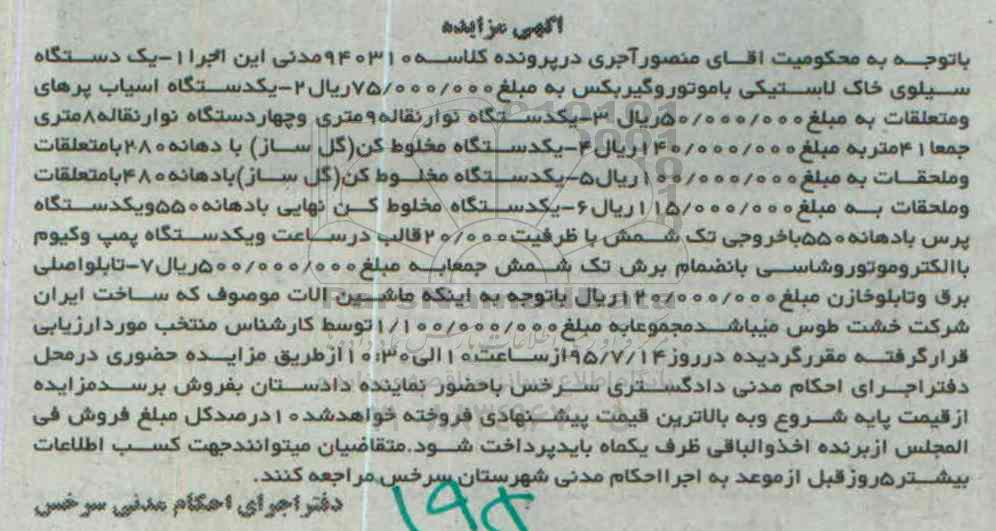 آگهی مزایده
باتوجه به محکومیت اقای منصورآجری درپرونده کلاسه۹۴۰۳۱۰مدنی این اجرا۱-یک دستگاه
سیلوی خاک لاستیکی باموتوروگیربکس به مبلغ۷۵/۰۰۰/۰۰۰ریال۲-یکدستگاه اسیاب پرهای
ومتعلقات به مبلغ۵۰/۰۰۰/۰۰۰ریال ۳-یکدستگاه نوارنقاله۹متری وچهاردستگاه نوارنقاله۸متری
جمعا۴۱متربه مبلغ۱۴۰/۰۰۰/۰۰۰ریال۴-یکدستگاه مخلوط کن(گل ساز) با دهانه۲۸۰بامتعلقات
وملحقات به مبلغ۱۰۰/۰۰۰/۰۰۰ریال۵-یکدستگاه مخلوط کن(گل ساز)بادهانه۴۸۰بامتعلقات
وملحقات به مبلغ۱۱۵/۰۰۰/۰۰۰ریال۶-یکدستگاه مخلوط کن نهایی بادهانه۵۵۰ویکدستگاه
پرس بادهانه۵۵۰باخروجی تک شمش با ظرفیت۲۰/۰۰۰قالب درساعت ویکدستگاه پمپ وکیوم
باالکتروموتوروشاسی بانضمام برش تک شمش جمعابه مبلغ۵۰۰/۰۰۰/۰۰۰ریال۷-تابلواصلی
برق وتابلوخازن مبلغ۱۲۰/۰۰۰/۰۰۰ریال باتوجه به اینکه ماشین الات موصوف که ساخت ایران
شرکت خشت طوس میباشدمجموعابه مبلغ۱/۱۰۰/۰۰۰/۰۰۰توسط کارشناس منتخب موردارزیابی
قرارگرفته مقررگردیده درروز۹۵/۷/۱۴ازساعت۱۰الی۱۰:۳۰ازطریق مزایده حضوری درمحل
دفتراجرای احکام مدنی دادگستری سرخس باحضور نماینده دادستان بفروش برسدمزایده
ازقیمت پایه شروع وبه بالاترین قیمت پیشنهادی فروخته خواهدشد۱۰درصدکل مبلغ فروش فی
المجلس ازبرنده اخذوالباقی ظرف یکماه بایدپرداخت شود.متقاضیان میتوانندجهت کسب اطلاعات
بیشتر۵روزقبل ازموعد به اجرااحکام مدنی شهرستان سرخس مراجعه کنند.
دفتراجرای احکام مدنی سرخس